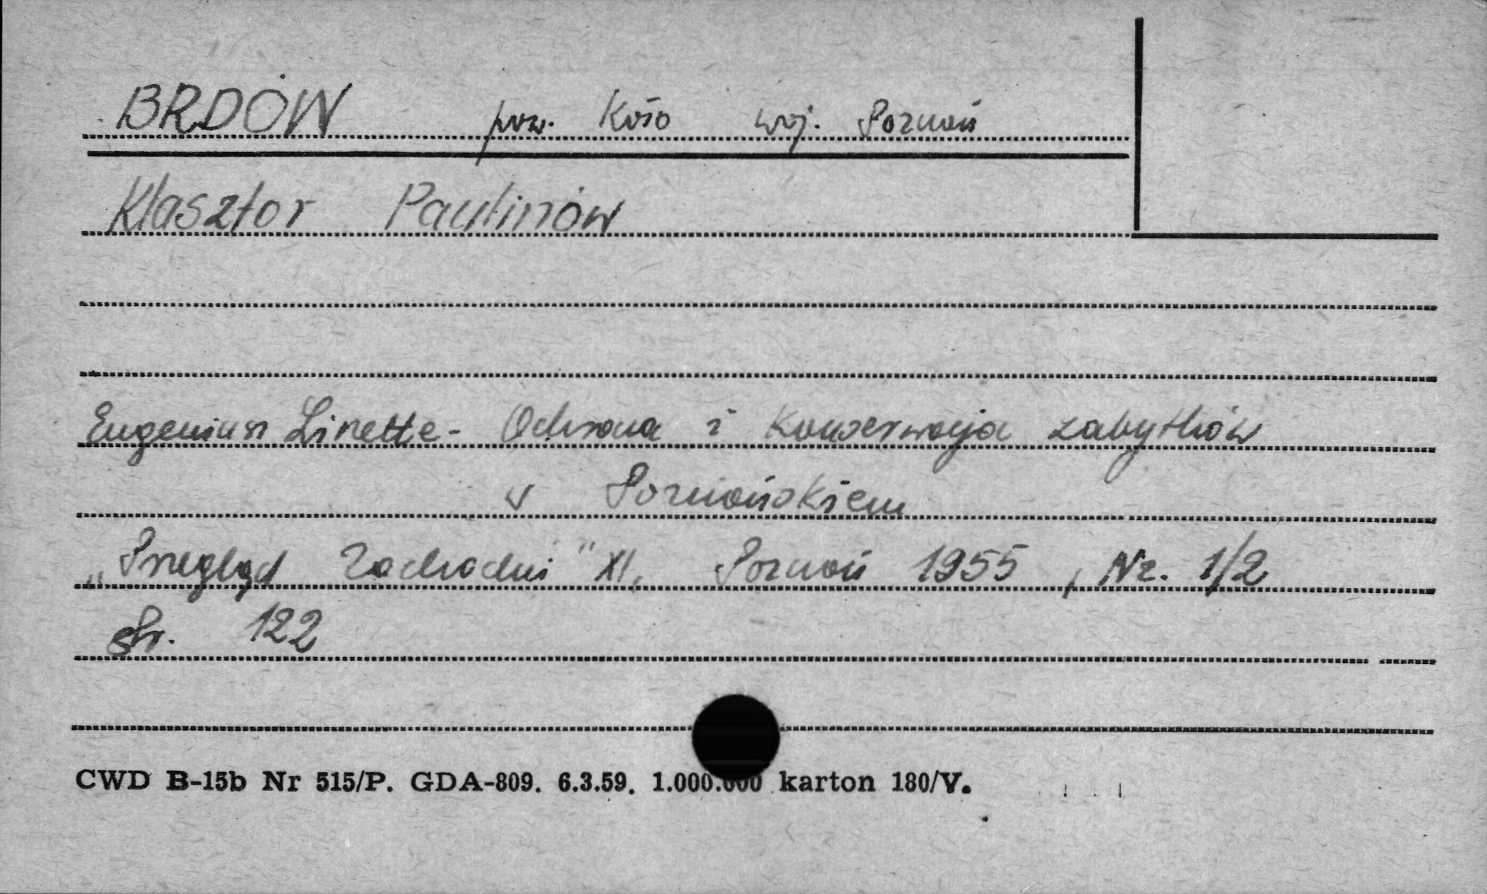 BRDÓW pow. Koło woj. Poznań
Klasztor Paulinów
Eugeniusz Linette - Ochrona i Konserwacja zabytków
w Poznańskiem
„Przegląd Zachodni" XI, Poznań 1955, Nr. 1/2
str. 122
CWD B-15b Nr 515/P. GDA-809. 6.3.59. 1.000.000 karton 180/V.